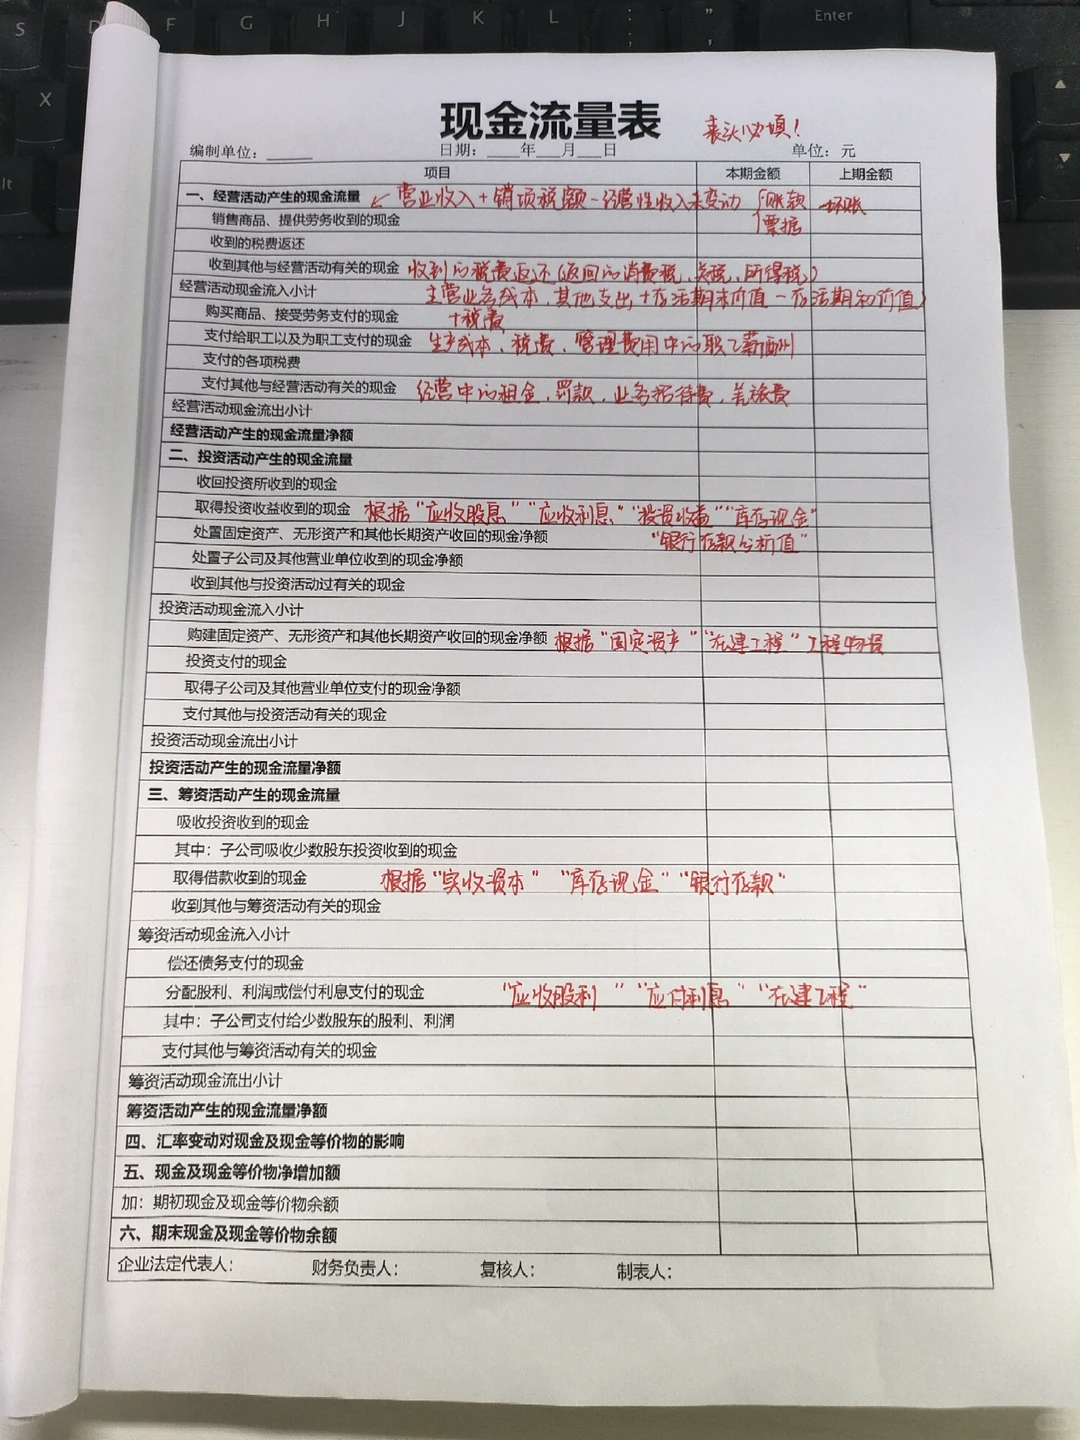 现金流量表 表头必填！
编制单位：_____ 日期：____年___月___日 单位：元
项目 本期金额 上期金额
一、经营活动产生的现金流量 ↙ 营业收入+销项税额-经营性收入未变动 {账款 -坏账
销售商品、提供劳务收到的现金 票据
收到的税费返还
收到其他与经营活动有关的现金 收到的税费返还(返回的消费税、关税、所得税)
经营活动现金流入小计 主营业务成本、其他支出+存活期末价值-存活期初价值)
购买商品、接受劳务支付的现金 +税费
支付给职工以及为职工支付的现金 生产成本、税费、管理费用中的职工薪酬
支付的各项税费
支付其他与经营活动有关的现金 经营中的租金、罚款、业务招待费、差旅费
经营活动现金流出小计
经营活动产生的现金流量净额
二、投资活动产生的现金流量
收回投资所收到的现金
取得投资收益收到的现金 根据“应收股息”“应收利息”“投资收益”“库存现金”
处置固定资产、无形资产和其他长期资产收回的现金净额 “银行存款分析值”
处置子公司及其他营业单位收到的现金净额
收到其他与投资活动过有关的现金
投资活动现金流入小计
购建固定资产、无形资产和其他长期资产收回的现金净额 根据“固定资产”“在建工程”工程物资
投资支付的现金
取得子公司及其他营业单位支付的现金净额
支付其他与投资活动有关的现金
投资活动现金流出小计
投资活动产生的现金流量净额
三、筹资活动产生的现金流量
吸收投资收到的现金
其中：子公司吸收少数股东投资收到的现金
取得借款收到的现金 根据“实收资本”“库存现金”“银行存款”
收到其他与筹资活动有关的现金
筹资活动现金流入小计
偿还债务支付的现金
分配股利、利润或偿付利息支付的现金 “应收股利”“应付利息”“在建工程”
其中：子公司支付给少数股东的股利、利润
支付其他与筹资活动有关的现金
筹资活动现金流出小计
筹资活动产生的现金流量净额
四、汇率变动对现金及现金等价物的影响
五、现金及现金等价物净增加额
加：期初现金及现金等价物余额
六、期末现金及现金等价物余额
企业法定代表人： 财务负责人： 复核人： 制表人：
S D F G H J K L : ; " , Enter
X
lt